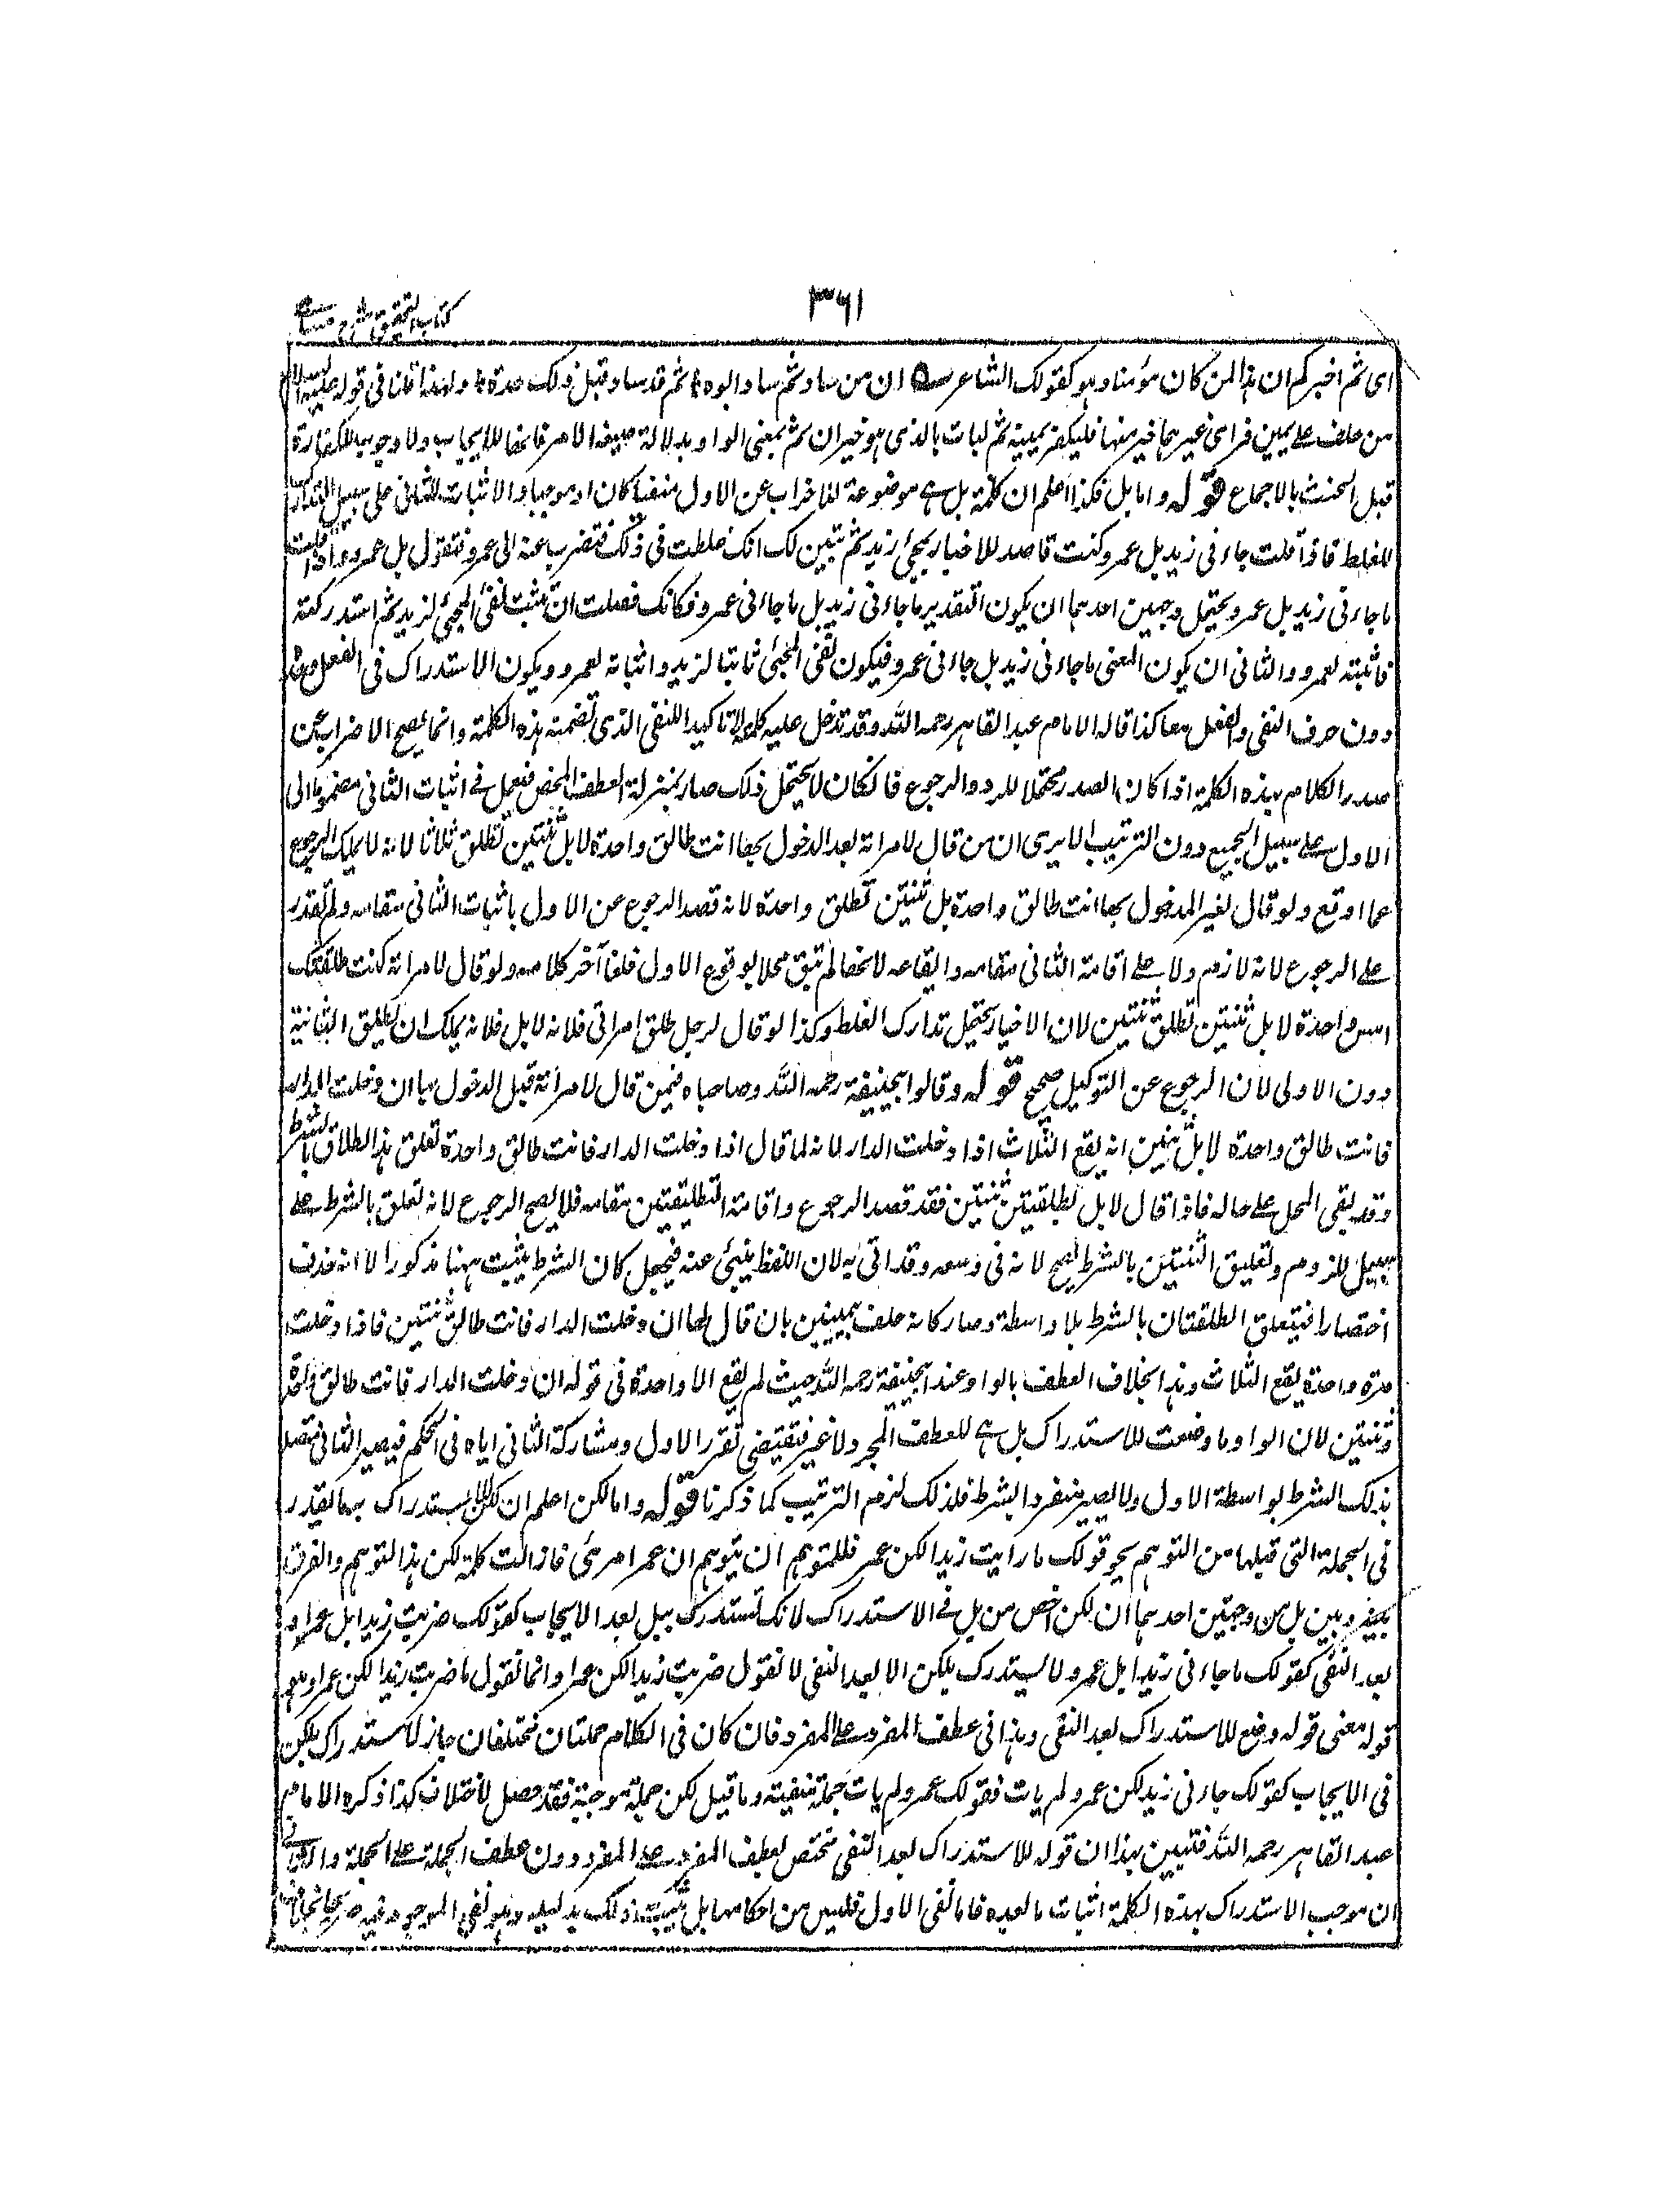 ٣٦١
كتاب التحقيق شرح حسامى
اى ثم اخبركم ان هذا لمن كان مؤمنا وهو كقولك الشاعر ان من ساد ثم ساد ابوه ثم قد ساد قبل ذلك جده ولهذا قلنا فى قوله عليه السلام
من حلف على يمين فراى غيرها خيرا منها فليكفر يمينه ثم ليات بالذى هو خير ان ثم بمعنى الواو بدلالة صيغة الامر فانها للايجاب ولا وجوب للكفارة
قبل الحنث بالاجماع قوله واما بل فكذا اعلم ان كلمة بل هى موضوعة للاضراب عن الاول منفيا كان او موجبا والاثبات للثانى على سبيل التدارك
للغلط فاذا قلت جاءنى زيد بل عمرو كنت قاصد للاخبار بمجئ زيد ثم تبين لك انك غلطت فى ذلك فتضرب عنه الى عمرو فتقول بل عمرو واذا قلت
ما جاءنى زيد بل عمرو يحتمل وجهين احدهما ان يكون التقدير ما جاءنى زيد بل ما جاءنى عمرو فكانك قصدت ان تثبت نفى المجئ لزيد ثم استدركته
فاثبته لعمرو والثانى ان يكون المعنى ما جاءنى زيد بل جاءنى عمرو فيكون نفى المجئ ثابتا لزيد واثباته لعمرو ويكون الاستدراك فى الفعل وحده
دون حرف النفى والفعل معا كذا قاله الامام عبد القاهر رحمه الله وقد تدخل عليه كلمة لا تاكيدا للنفى الذى تضمنته هذه الكلمة وانما يصح الاضراب عن
صدر الكلام بهذه الكلمة اذا كان الصدر محتملا للرد والرجوع فان كان لا يحتمل ذلك صار بمنزلة العطف المحض فيعمل فى اثبات الثانى مضموما الى
الاول على سبيل الجميع دون الترتيب الا يرى ان من قال لامراته بعد الدخول بها انت طالق واحدة لا بل ثنتين تطلق ثلاثا لانه لا يملك الرجوع
عما اوقع ولو قال لغير المدخول بها انت طالق واحدة بل ثنتين تطلق واحدة لانه قصد الرجوع عن الاول باثبات الثانى مقامه ولم يقدر
على الرجوع لانه لازم ولا على اقامة الثانى مقامه وايقاعه لانها لم تبق محلا بوقوع الاول فلغا آخر كلامه ولو قال لامراته كنت طلقتك
امس واحدة لا بل ثنتين تطلق ثنتين لان الاخبار يحتمل تدارك الغلط وكذا لو قال لرجل طلق امراتى فلانة لا بل فلانة يملك ان يطلق الثانية
دون الاولى لان الرجوع عن التوكيل صحيح قوله وقالوا ابو حنيفة رحمه الله وصاحباه فيمن قال لامراته قبل الدخول بها ان دخلت الدار
فانت طالق واحدة لا بل ثنتين انه يقع الثلاث اذا دخلت الدار لانه لما قال اذا دخلت الدار فانت طالق واحدة تعلق هذا الطلاق بالشرط
وقد بقى المحل على حاله فاذا قال لا بل تطليقتين ثنتين فقد قصد الرجوع واقامة التطليقتين مقامه فلا يصح الرجوع لانه تعلق بالشرط على
سبيل اللزوم وتعليق الثنتين بالشرط يصح لانه فى وسعه وقد اتى به لان اللفظ ينبئ عنه فيجعل كان الشرط يثبت ههنا مذكورا الا انه حذف
اختصارا فيتعلق الطلقتان بالشرط بلا واسطة وصار كانه حلف بيمينين بان قال لها ان دخلت الدار فانت طالق ثنتين فاذا دخلت
مرة واحدة يقع الثلاث وهذا بخلاف العطف بالواو عند ابى حنيفة رحمه الله حيث لم يقع الا واحدة فى قوله ان دخلت الدار فانت طالق واحدة
وثنتين لان الواو ما وضعت للاستدراك بل هى للعطف المجرد لا غير فتقتضى تقرر الاول ومشاركة الثانى اياه فى الحكم فيصير الثانى متصلا
بذلك الشرط بواسطة الاول ولا يصير منفردا بشرط فلذلك لزم الترتيب كما ذكرنا قوله واما لكن اعلم ان لكن للاستدراك بها لقدر
فى الجملة التى قبلها من التوهم نحو قولك ما رايت زيدا لكن عمر فللمتوهم ان يتوهم ان عمرا مرئى فازالت كلمة لكن هذا التوهم والفرق
بينه وبين بل من وجهين احدهما ان لكن اخص من بل فى الاستدراك لانك تستدرك ببل بعد الايجاب كقولك ضربت زيدا بل عمرا و
بعد النفى كقولك ما جاءنى زيدا بل عمرو ولا يستدرك بلكن الا بعد النفى لا تقول ضربت زيدا لكن عمرا وانما تقول ما ضربت زيدا لكن عمرا وهو
قوله معنى قوله وضع للاستدراك بعد النفى وهذا فى عطف المفرد على المفرد فان كان فى الكلام جملتان مختلفان جاز الاستدراك بلكن
فى الايجاب كقولك جاءنى زيد لكن عمرو لم يات فقولك عمرو لم يات جملة منفية وما قبل لكن جملة موجبة فقد حصل الاختلاف كذا ذكره الامام
عبد القاهر رحمه الله فتبين بهذا ان قوله للاستدراك بعد النفى مختص بعطف المفرد على المفرد دون عطف الجملة على الجملة والثانى
ان موجب الاستدراك بهذه الكلمة اثبات ما بعده فاما نفى الاول فليس من احكامها بل يثبت ذلك بدليله وهو نفى الموجود فيه صريحا